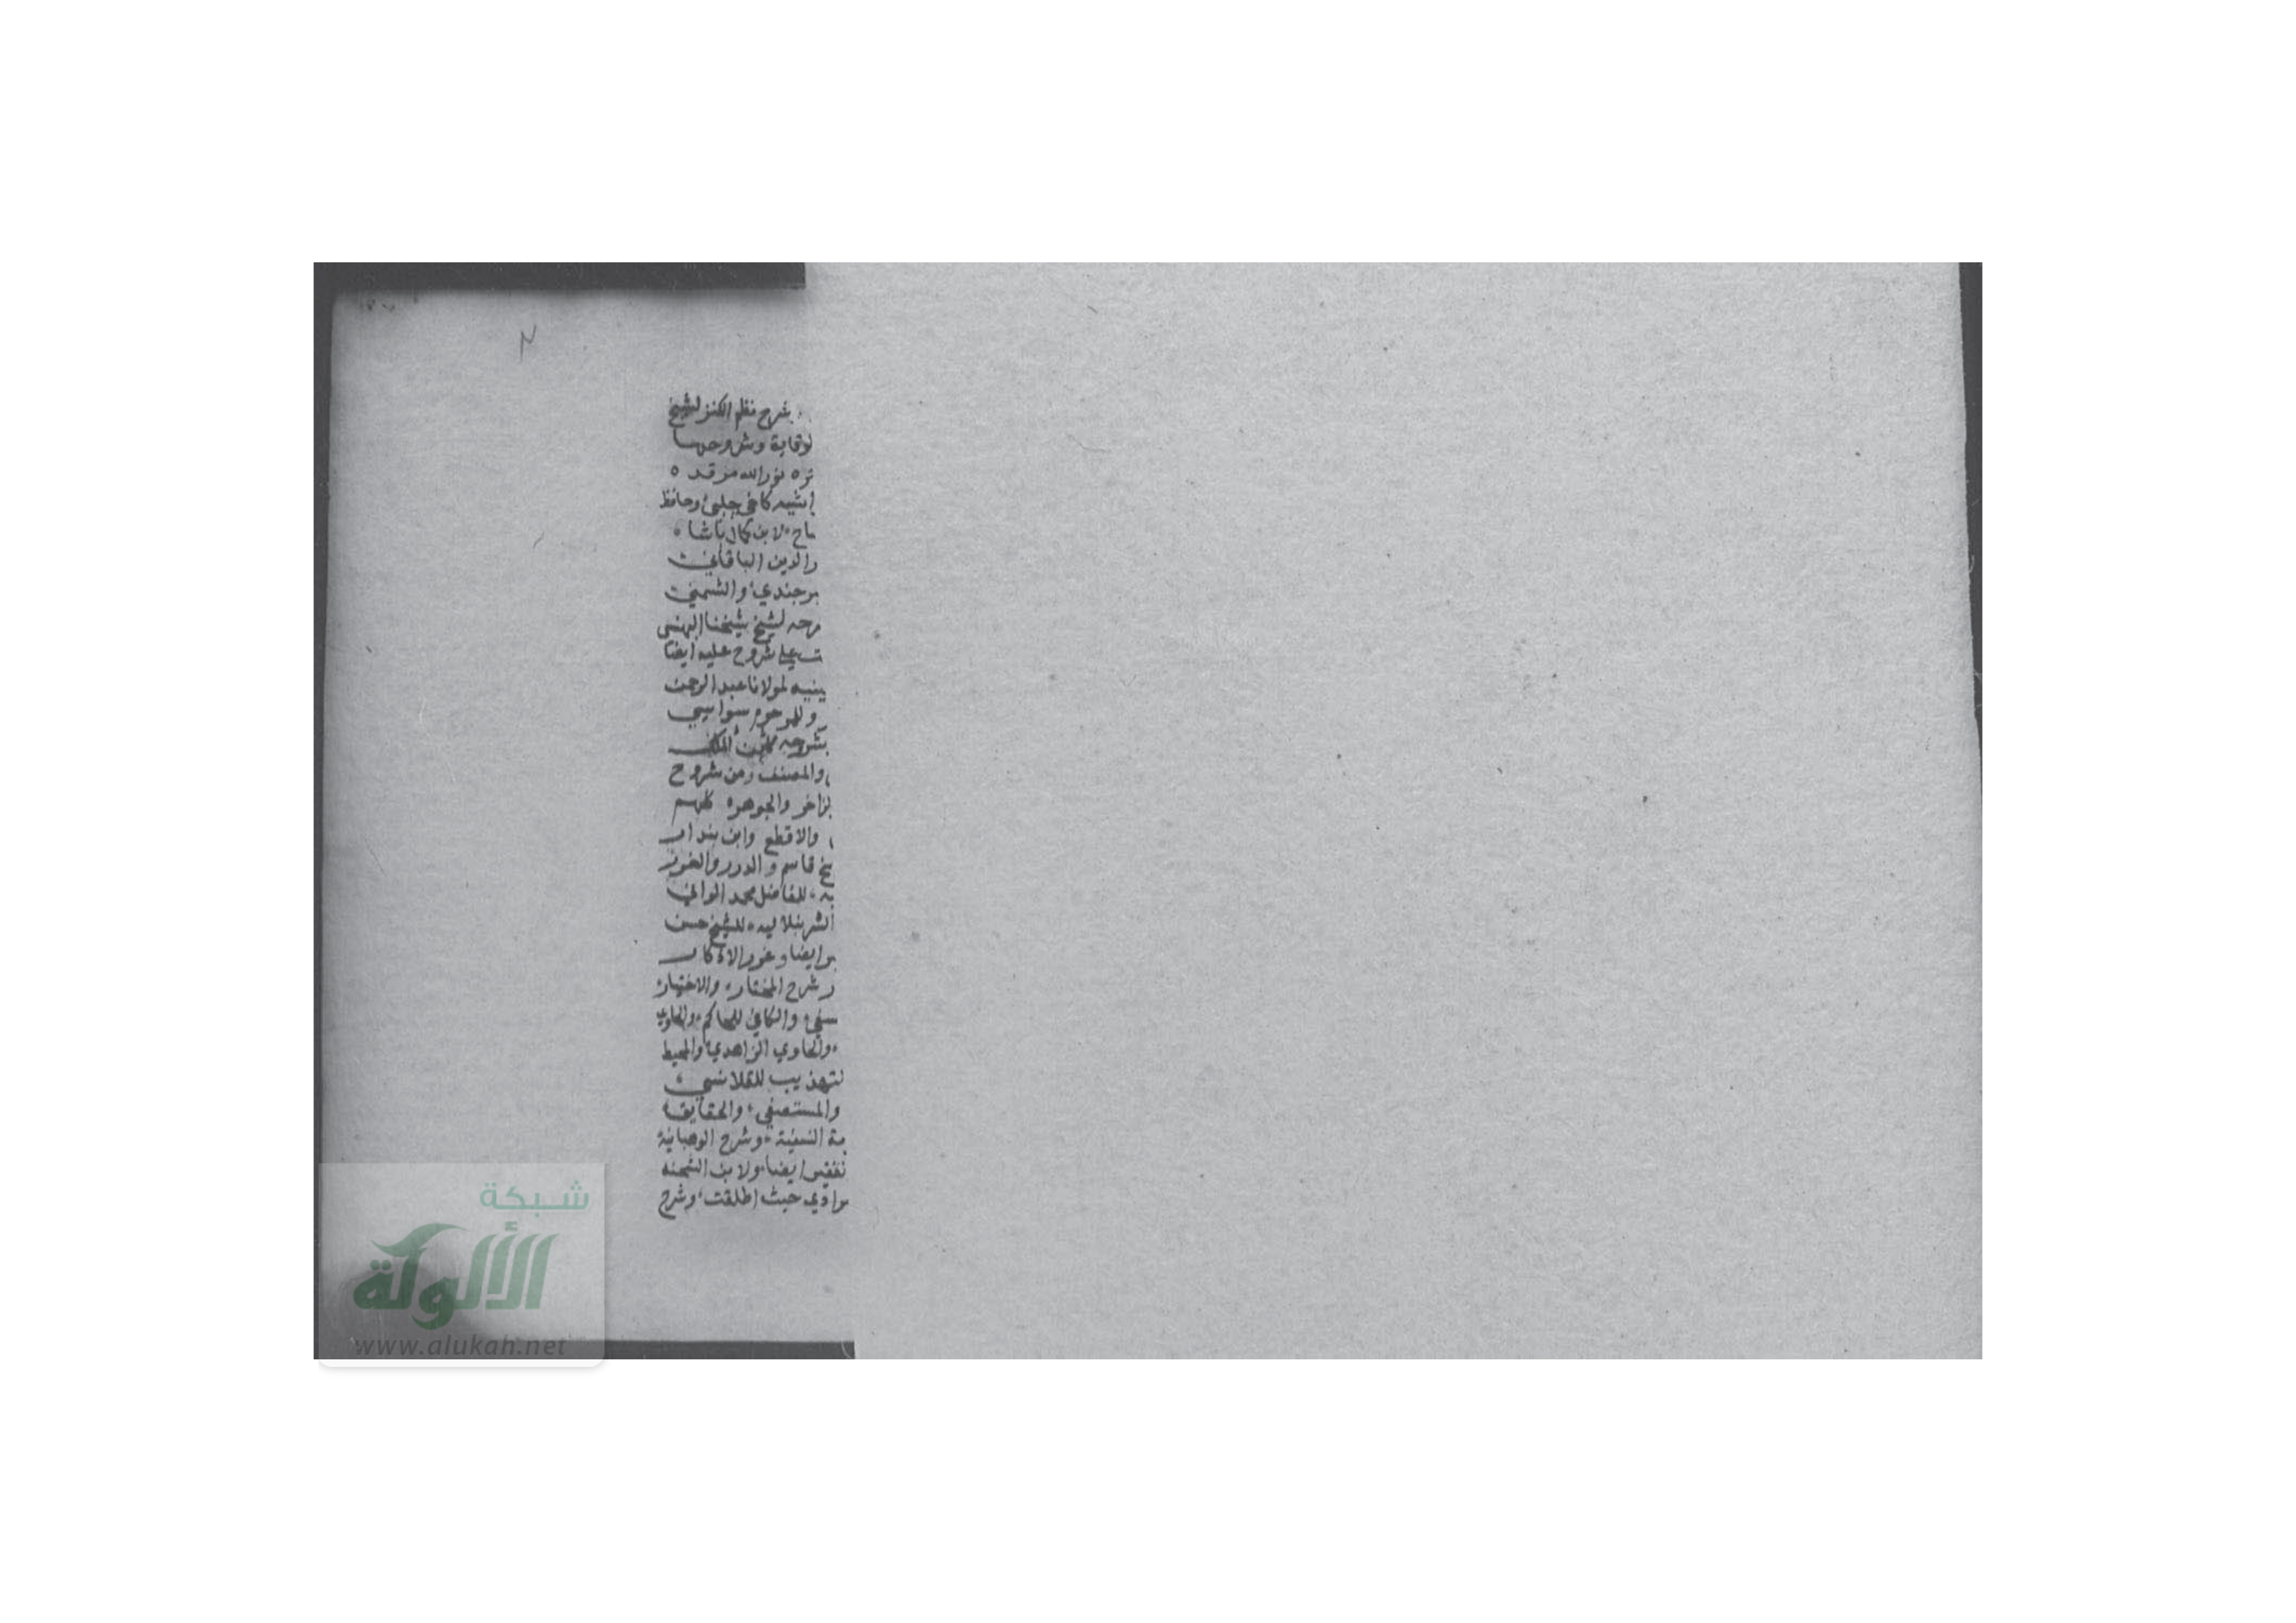 شرح نظم الكنز لشيخ
لوقاية وشروحها
نوراللہ مرقده
كاخي جلبي وحافظ
لابن كمال باشا
رالدين الباقاني
برجندي والشمني
رحه لشيخ شيخنا البهنسي
علي شروح عليه ايضا
لمولانا عبد الرحمن
وللمرحوم سواسي
بشروحه
والمصنف ومن شروح
لزاخر والجوهره كلهم
والاقطع وابن بندار
يخ قاسم والدرر والغرر
به للفاضل محمد الواني
الشرنبلاليه للشيخ حسن
ايضا وغرر الاذكار
ر شرح المختار والاختيار
سفي والكافي للحاكم والحاوي
والحاوي الزاهدي والمحيط
لتهذيب للقلانسي
والمستصفي والحقايق
مة النسفية وشرح الوهبانية
ايضا ولابن الشحنه
حيث اطلقت وشرح
شبكة
الألوكة
www.alukah.net